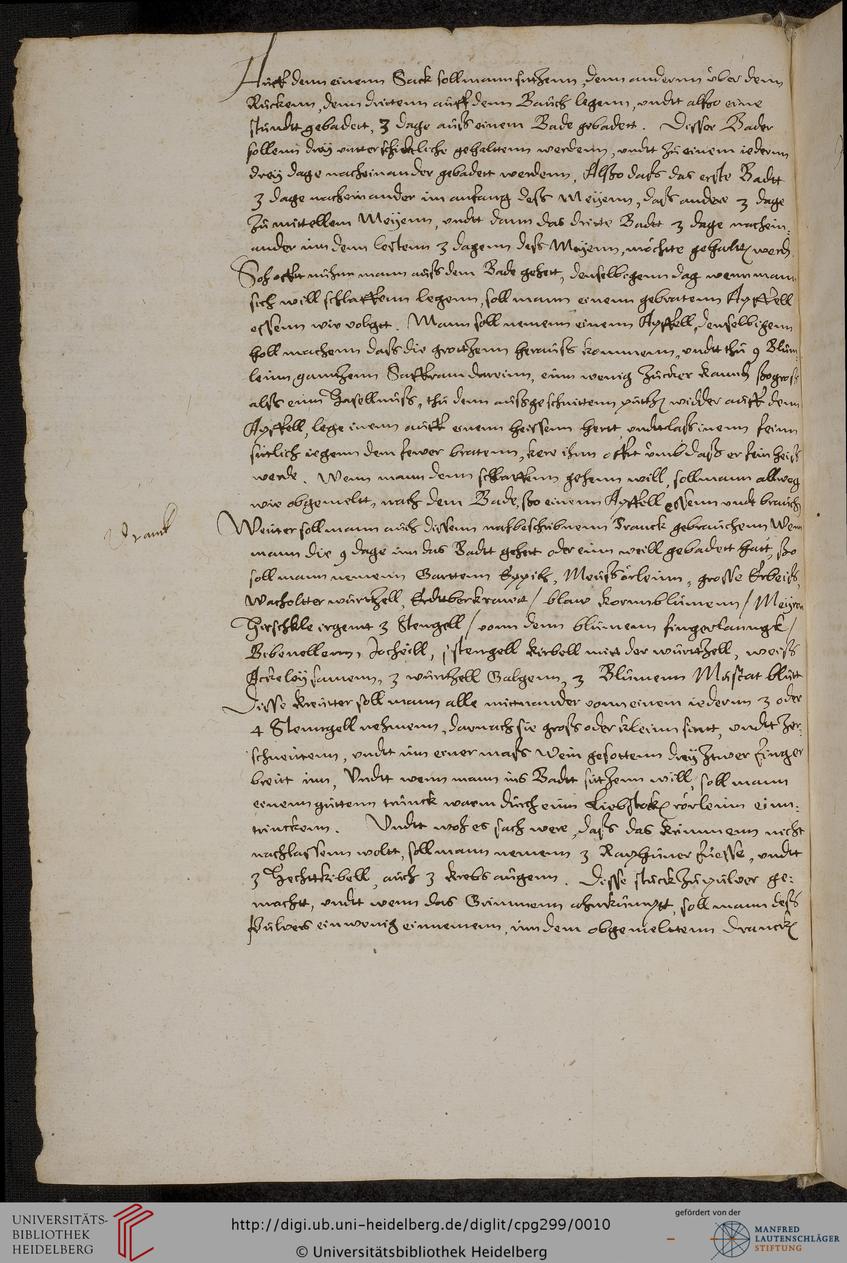 Auff denn einenn Sack soll mann sitzenn, denn andernn uber denn
Ruckenn, denn drittenn auff denn Bauch legenn, undt also eine
stundt gebadett, 3 dage auß einem Bade gebadett. Disser Bader
sollenn drey unterschiedtliche gehaltenn werdenn, undt zu einem iedernn
drey dage nacheinander gebadett werdenn, Also daß das erste Badtt
3 dage nacheinander im anfang deß Meyenn, daß andere 3 dage
Zu mittellem Meyenn, undt dann das dritte Badtt 3 dage nachein:
ander inn denn lestenn 3 dagenn deß Meyenn, möchte gehalten werden
So offtt nuhn mann auß dem Bade gehett, denselbigenn dag wenn mann
sich will schlaffenn legenn, soll mann einenn gebratenn Apffell
essenn wie volgett. Mann soll nemenn einenn Apffell, denselbigenn
holl machenn daß die grotzenn herauß kommenn, undtt thu 9 Blum
leinn gantzenn Saffrann dareinn, einn wenig Zucker kandj so groß
alß einn Haselnuß, thu denn außgeschnittenn widder auff denn
Apffell, lege inenn auff einenn heissenn hertt, undt laß inenn feinn
sittlich iegenn dem fewer bratenn, kere ihnn offtt umb daß er fein heiß
werde. Wenn mann denn schlaffenn gehenn will, soll mann allweg
wie obgemeltt, nach dem Bade, so einenn Apffell essenn undt brauch
Dranck
Weiter soll mann auch dissenn nachbeschribnenn Tranck gebrauchenn Wenn
mann die 9 dage inn das Badtt gehett oder einn weill gebadett hatt, so
soll mann nemenn Gartenn Eppich, Meußörleinn, grosse Erbeiß,
Wacholtter wurtzell, Erdtberkrawtt / blaw kornnblumenn / Meyenn
Hirschkle irgentt 3 Stengell / vonn denn blumenn fingerlanngk /
Bibenellenn, stengell kirbell mitt der wurtzell, weiß
Ackeley samenn, 3 wurtzell Galgenn, 3 Blumenn Muscat blutt
Disse kreutter soll mann alle mittnander vonn einem iedernn 3 oder
4 Stenngell nehmenn, darnach sie groß oder kleinn sintt, undtt zer:
schneidenn, undtt inn einer maß Wein gesottenn drey zwer finger
breitt inn, Undtt wenn mann ins Badtt sitzenn will, soll mann
einenn guttenn trunck warm durch ein Liebstock rörleinn einn:
trinckenn. Undtt woh es sach were, daß das krimmenn nicht
nachlassenn woltt, soll mann nemenn 3 Raphuner fuesse, undtt
3 Hechttkibell, auch 3 krebs augenn. Disse stuck zu pulver ge:
machtt, undtt wenn das Grimmenn ahnkumptt, soll mann deß
Pulvers ein wenig einnemenn, inn dem obgemeltenn Dranck
UNIVERSITÄTS-
BIBLIOTHEK
HEIDELBERG
http://digi.ub.uni-heidelberg.de/diglit/cpg299/0010
© Universitätsbibliothek Heidelberg
gefördert von der
MANFRED
LAUTENSCHLÄGER
STIFTUNG